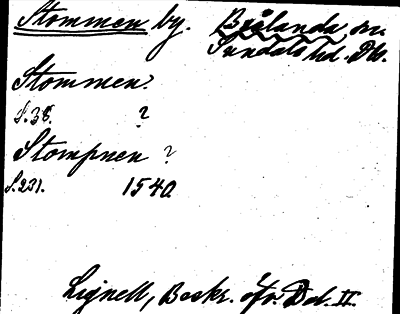 Stommen by. Brålanda sn.
Sundals hd. Dls.
Stommen.
S. 38. ?
Stompnen ?
S. 231. 1540.
Lignell, Beskr. öfv. Dal. II.